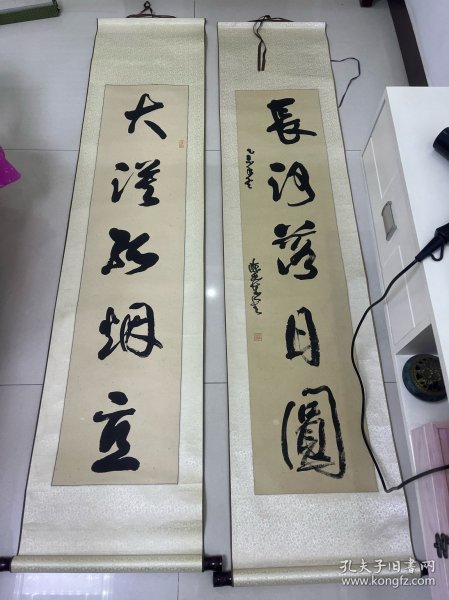 大漠孤烟直
長河落日圆
孔夫子旧书网
www.kongfz.com